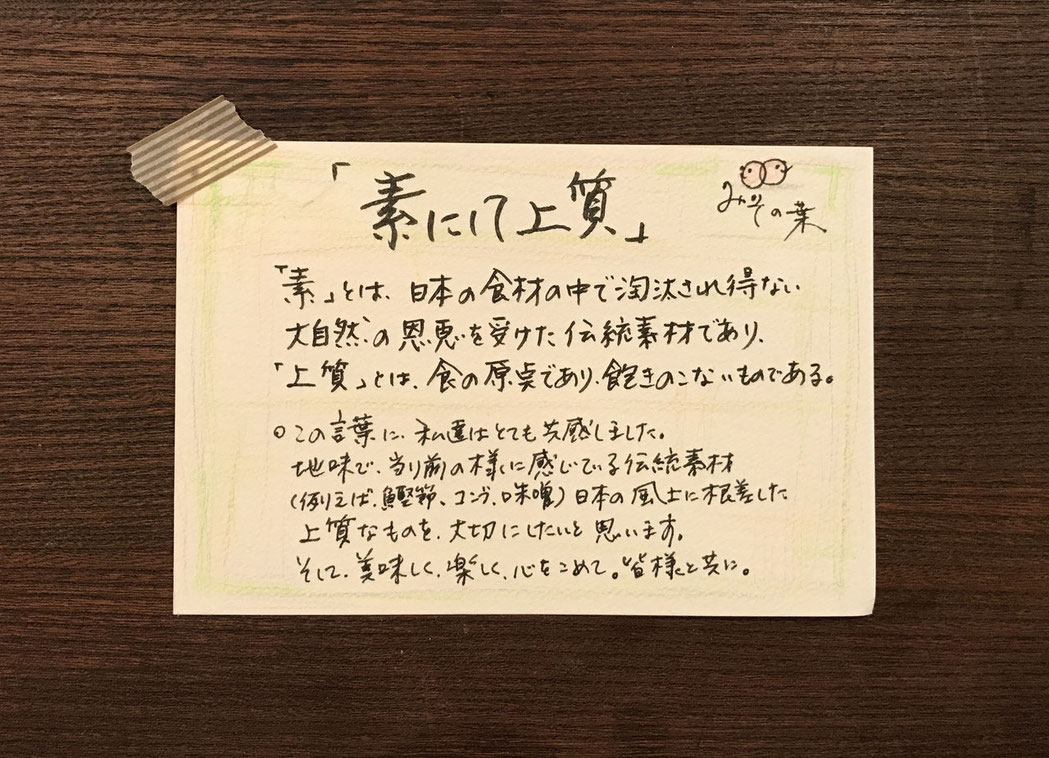 「素にして上質」
みその葉
「素」とは、日本の食材の中で淘汰され得ない
大自然の恩恵を受けた伝統素材であり、
「上質」とは、食の原点であり、飽きのこないものである。
○この言葉に、私達はとても共感しました。
地味で、当り前の様に感じている伝統素材
(例えば、鰹節、コンブ、味噌)日本の風土に根差した
上質なものを、大切にしたいと思います。
そして、美味しく、楽しく、心をこめて。皆様と共に。